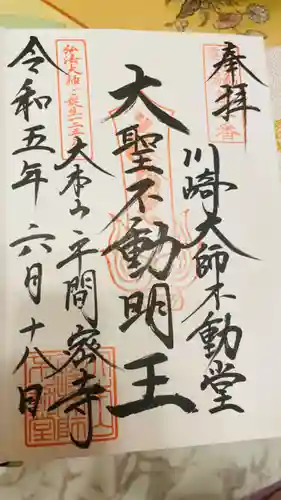 奉拝
川崎大師不動堂
大聖不動明王
弘法大師ご誕生一二五
大本山平間密寺
令和五年六月十八日